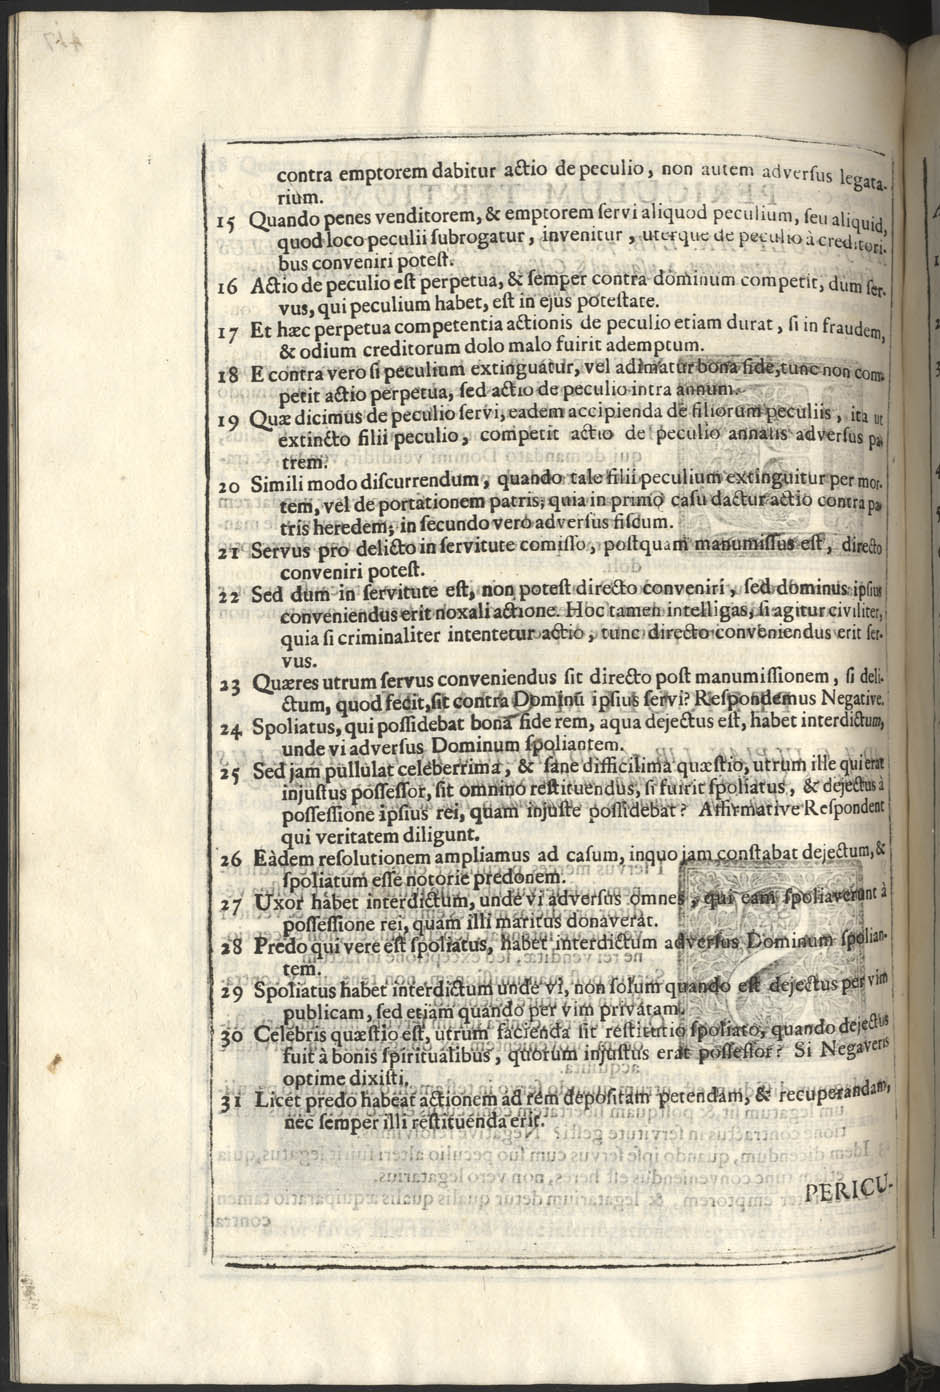 contra emptorem dabitur actio de peculio, non autem adversus legata-
rium.
15 Quando penes venditorem, & emptorem servi aliquod peculium, seu aliquid,
quod loco peculii subrogatur, invenitur, uterque de peculio à creditori-
bus conveniri potest.
16 Actio de peculio est perpetua, & semper contra dominum competit, dum ser-
vus, qui peculium habet, est in ejus potestate.
17 Et hæc perpetua competentia actionis de peculio etiam durat, si in fraudem,
& odium creditorum dolo malo fuirit ademptum.
18 E contra vero si peculium extinguatur, vel adimatur bona fide, tunc non com-
petit actio perpetua, sed actio de peculio intra annum.
19 Quæ dicimus de peculio servi, eadem accipienda de filiorum peculiis, ita ut
extincto filii peculio, competit actio de peculio annalis adversus pa-
trem.
20 Simili modo discurrendum, quando tale filii peculium extinguitur per mor-
tem, vel de portationem patris; quia in primo casu dactur actio contra pa-
tris heredem; in secundo vero adversus fiscum.
21 Servus pro delicto in servitute comisso, postquam manumissus est, directo
conveniri potest.
22 Sed dum in servitute est, non potest directo conveniri, sed dominus ipsius
conveniendus erit noxali actione. Hoc tamen intelligas, si agitur civiliter,
quia si criminaliter intentetur actio, tunc directo conveniendus erit ser-
vus.
23 Quæres utrum servus conveniendus sit directo post manumissionem, si deli-
ctum, quod fecit, sit contra Dominũ ipsius servi? Respondemus Negative.
24 Spoliatus, qui possidebat bona fide rem, aqua dejectus est, habet interdictum,
unde vi adversus Dominum spoliantem.
25 Sed jam pullulat celeberrima, & sane difficilima quæstio, utrum ille qui erat
injustus possessor, sit omnino restituendus, si fuirit spoliatus, & dejectus à
possessione ipsius rei, quam injuste possidebat? Affirmative Respondent
qui veritatem diligunt.
26 Eàdem resolutionem ampliamus ad casum, inquo jam constabat dejectum, &
spoliatum esse notorie predonem.
27 Uxor habet interdictum, unde vi adversus omnes, qui eam spoliaverunt à
possessione rei, quam illi maritus donaverat.
28 Predo qui vere est spoliatus, habet interdictum adversus Dominum spolian-
tem.
29 Spoliatus habet interdictum unde vi, non solum quando est dejectus per vim
publicam, sed etiam quando per vim privatam.
30 Celebris quæstio est, utrum facienda sit restitutio spoliato, quando dejectus
fuit à bonis spiritualibus, quorum injustus erat possessor? Si Negaveris
optime dixisti.
31 Licet predo habeat actionem ad rem depositam petendam, & recuperandam,
nec semper illi restituenda erit.
PERICU-